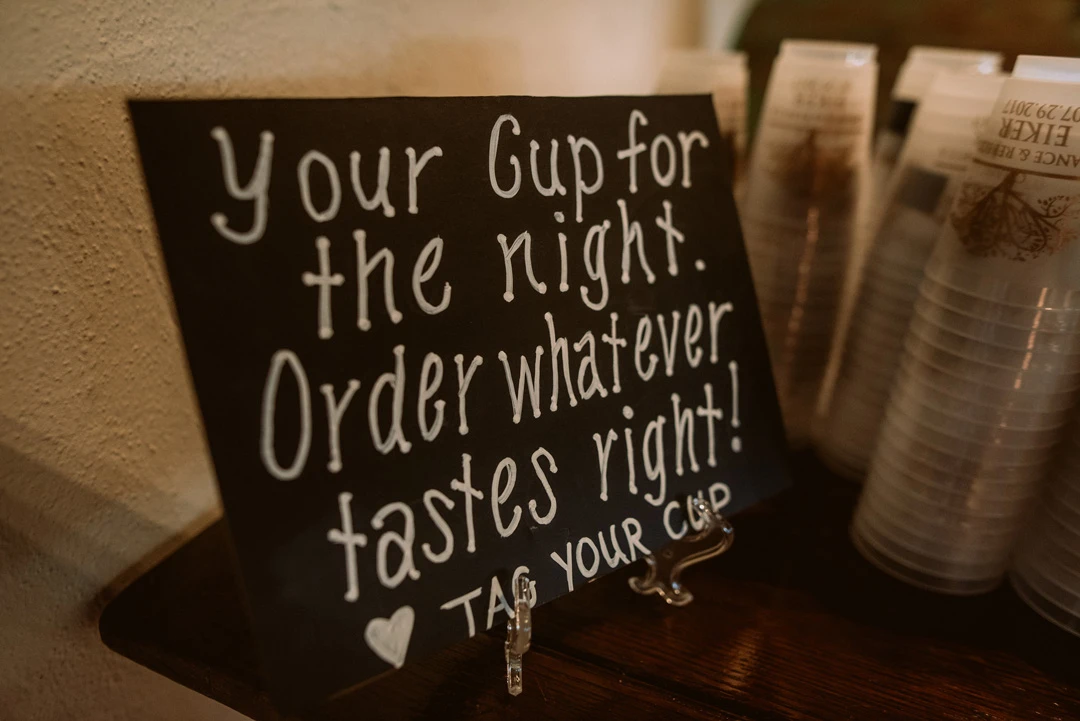 Your Cup for
the night.
Order whatever
tastes right!
TAG YOUR CUP
EIKER
07.29.2017